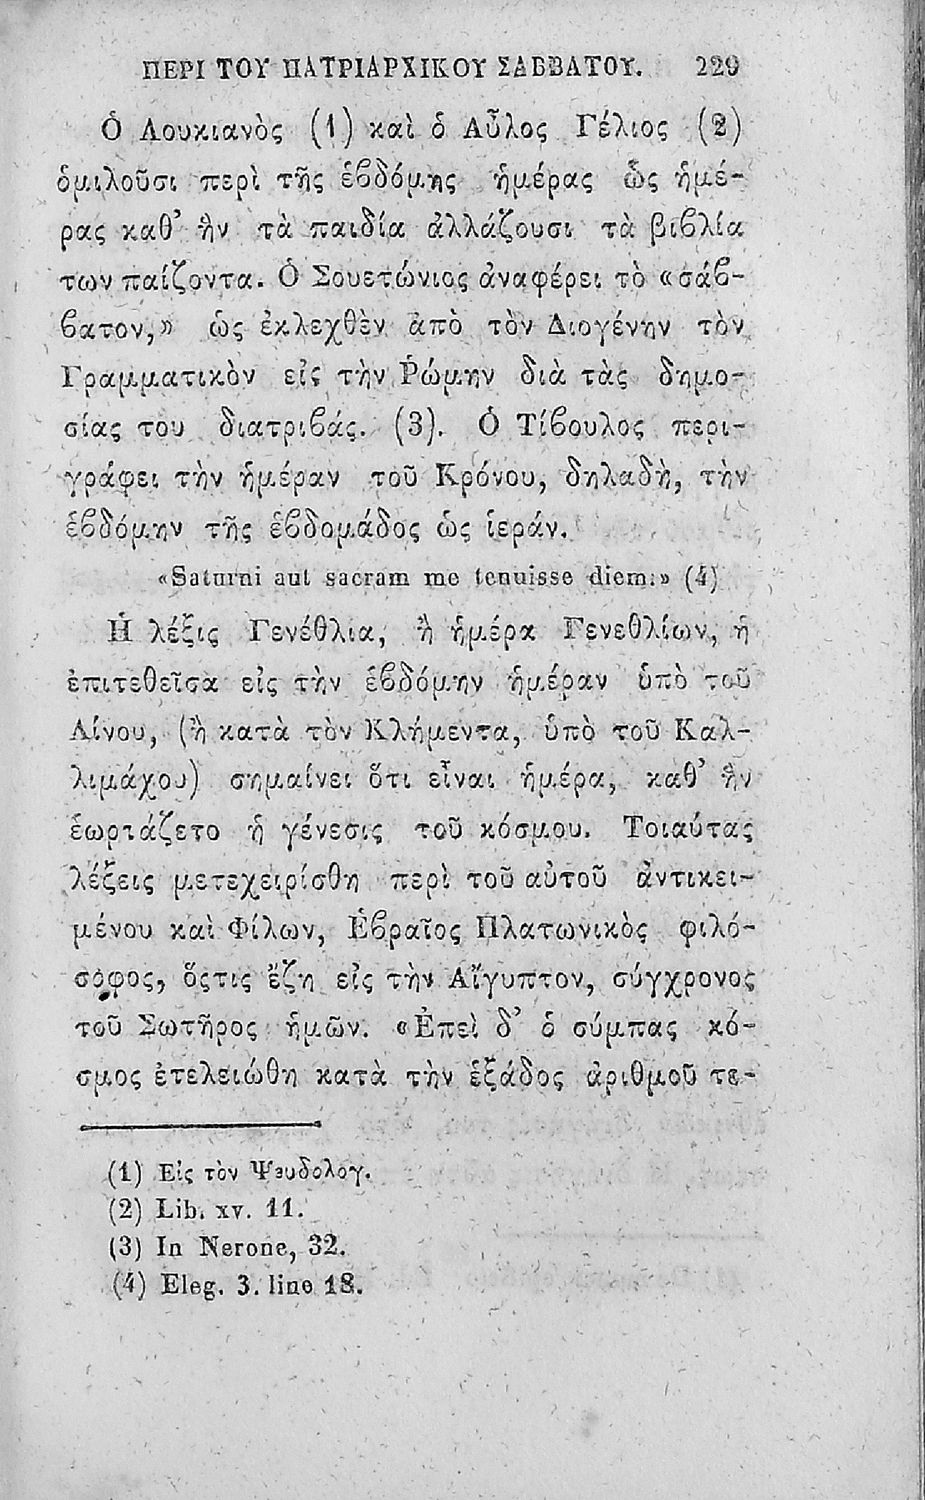 ΠΕΡΙ ΤΟΥ ΠΑΤΡΙΑΡΧΙΚΟΥ ΣΑΒΒΑΤΟΥ. 229
Ὁ Λουκιανὸς (1) καὶ ὁ Αὖλος Γέλιος (2)
ὁμιλοῦσι περὶ τῆς ἑβδόμης ἡμέρας ὡς ἡμέ-
ρας καθ’ ἣν τὰ παιδία ἀλλάζουσι τὰ βιβλία
των παίζοντα. Ὁ Σουετώνιος ἀναφέρει τὸ «σάβ-
βατον,» ὡς ἐκλεχθὲν ἀπὸ τὸν Διογένην τὸν
Γραμματικὸν εἰς τὴν Ῥώμην διὰ τὰς δημο-
σίας του διατριβάς. (3). Ὁ Τίβουλος περι-
γράφει τὴν ἡμέραν τοῦ Κρόνου, δηλαδὴ, τὴν
ἑβδόμην τῆς ἑβδομάδος ὡς ἱεράν.
«Saturni aut sacram me tenuisse diem:» (4)
Ἡ λέξις Γενέθλια, ἢ ἡμέρα Γενεθλίων, ἡ
ἐπιτεθεῖσα εἰς τὴν ἑβδόμην ἡμέραν ὑπὸ τοῦ
Λίνου, (ἢ κατὰ τὸν Κλήμεντα, ὑπὸ τοῦ Καλ-
λιμάχου) σημαίνει ὅτι εἶναι ἡμέρα, καθ’ ἣν
ἑωρτάζετο ἡ γένεσις τοῦ κόσμου. Τοιαύτας
λέξεις μετεχειρίσθη περὶ τοῦ αὐτοῦ ἀντικει-
μένου καὶ Φίλων, Ἑβραῖος Πλατωνικὸς φιλό-
σοφος, ὅςτις ἔζη εἰς τὴν Αἴγυπτον, σύγχρονος
τοῦ Σωτῆρος ἡμῶν. «Ἐπεὶ δ’ ὁ σύμπας κό-
σμος ἐτελειώθη κατὰ τὴν ἑξάδος ἀριθμοῦ τε-
(1) Εἰς τὸν Ψευδολογ.
(2) Lib. xv. 11.
(3) In Nerone, 32.
(4) Eleg. 3. line 18.